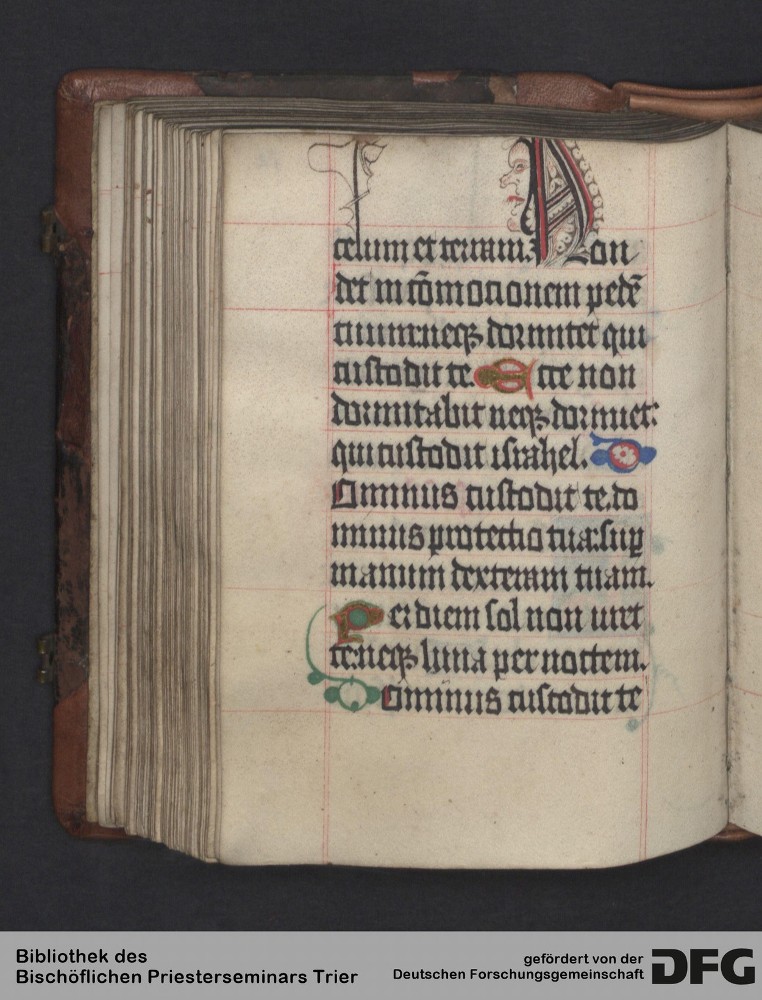 celum et terram. Non
det in cōmotionem pedē
tuum: neqꝫ dormitet qui
custodit te. Ecce non
dormitabit neqꝫ dormiet:
qui custodit israhel.
Dominus custodit te. do
minus protectio tua: suꝑ
manum dexteram tuam.
Per diem sol non uret
te: neqꝫ luna per noctem.
Dominus custodit te
Bibliothek des
Bischöflichen Priesterseminars Trier
gefördert von der
Deutschen Forschungsgemeinschaft
DFG